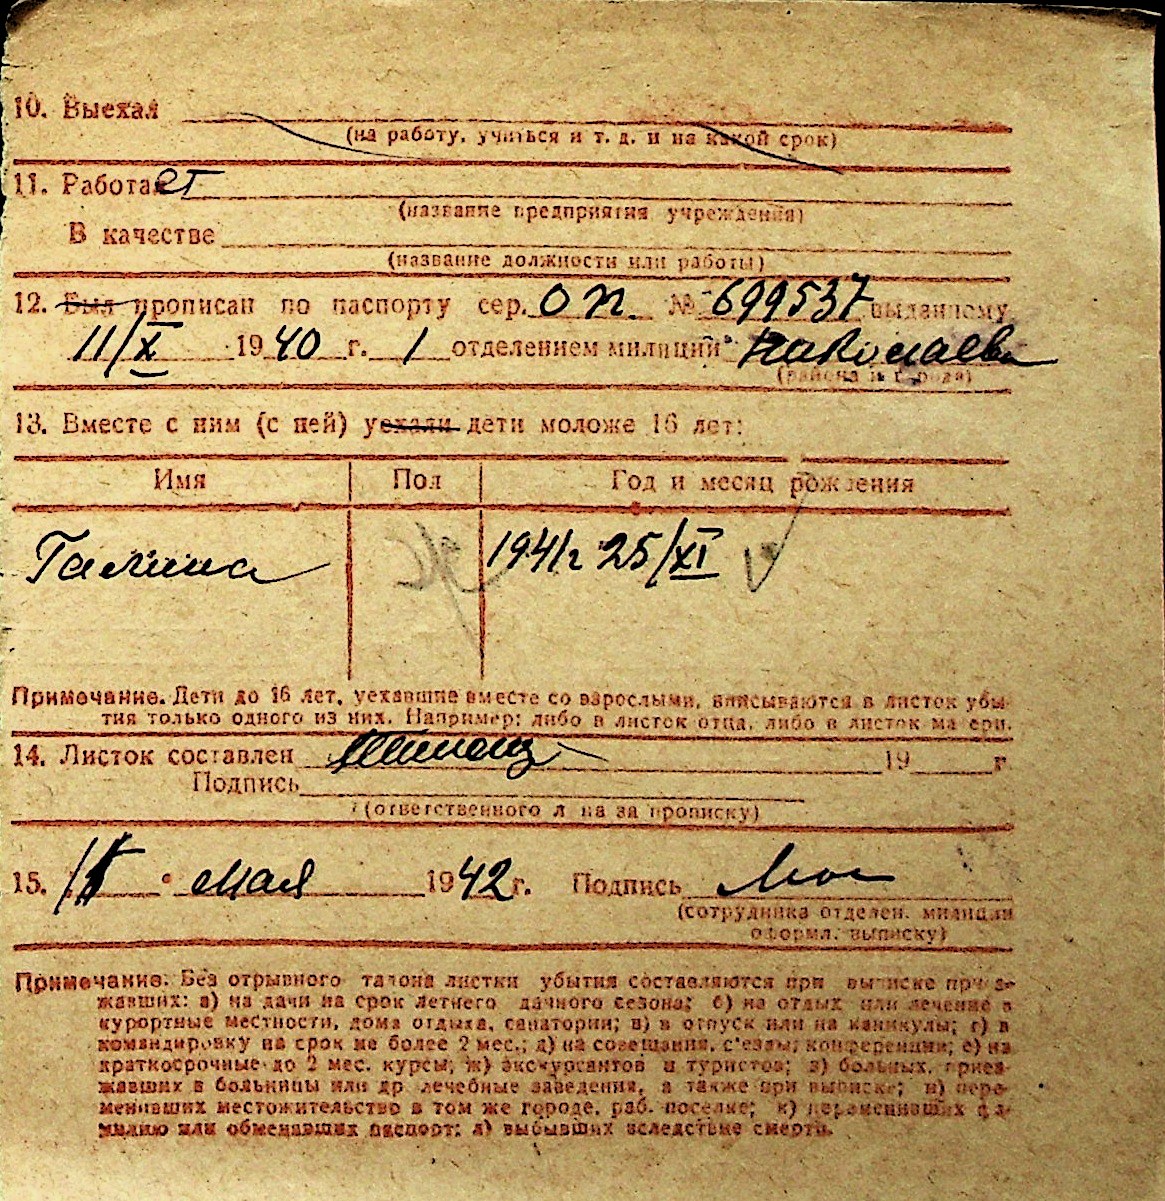 10. Выехал
(на работу, учиться и т. д. и на какой срок)
11. Работает
(название предприятия учреждения)
В качестве
(название должности или работы)
12. Был прописан по паспорту сер. ОП. № 699537 выданному
11/X 1940 г. 1 отделением милиции Николаева
(района и города)
13. Вместе с ним (с ней) уехали дети моложе 16 лет:
Имя Пол Год и месяц рождения
Галина 1941г 25/XI
Примечание. Дети до 16 лет, уехавшие вместе со взрослыми, вписываются в листок убы-
тия только одного из них. Например: либо в листок отца, либо в листок матери.
14. Листок составлен 19 г
Подпись
(ответственного лица за прописку)
15. мая 1942 г. Подпись
(сотрудника отделен. милиции
оформл. выписку)
Примечание: Без отрывного талона листки убытия составляются при выписке приез-
жавших: а) на дачи на срок летнего дачного сезона; б) на отдых или лечение в
курортные местности, дома отдыха, санатории; в) в отпуск или на каникулы; г) в
командировку на срок не более 2 мес.; д) на совещания, с'езды, конференции; е) на
краткосрочные до 2 мес. курсы; ж) экскурсантов и туристов; з) больных, приез-
жавших в больницы или др. лечебные заведения, а также при выписке; и) пере-
менивших местожительство в том же городе, раб. поселке; к) переменивших фа-
милию или обменявших паспорт; л) выбывших вследствие смерти.